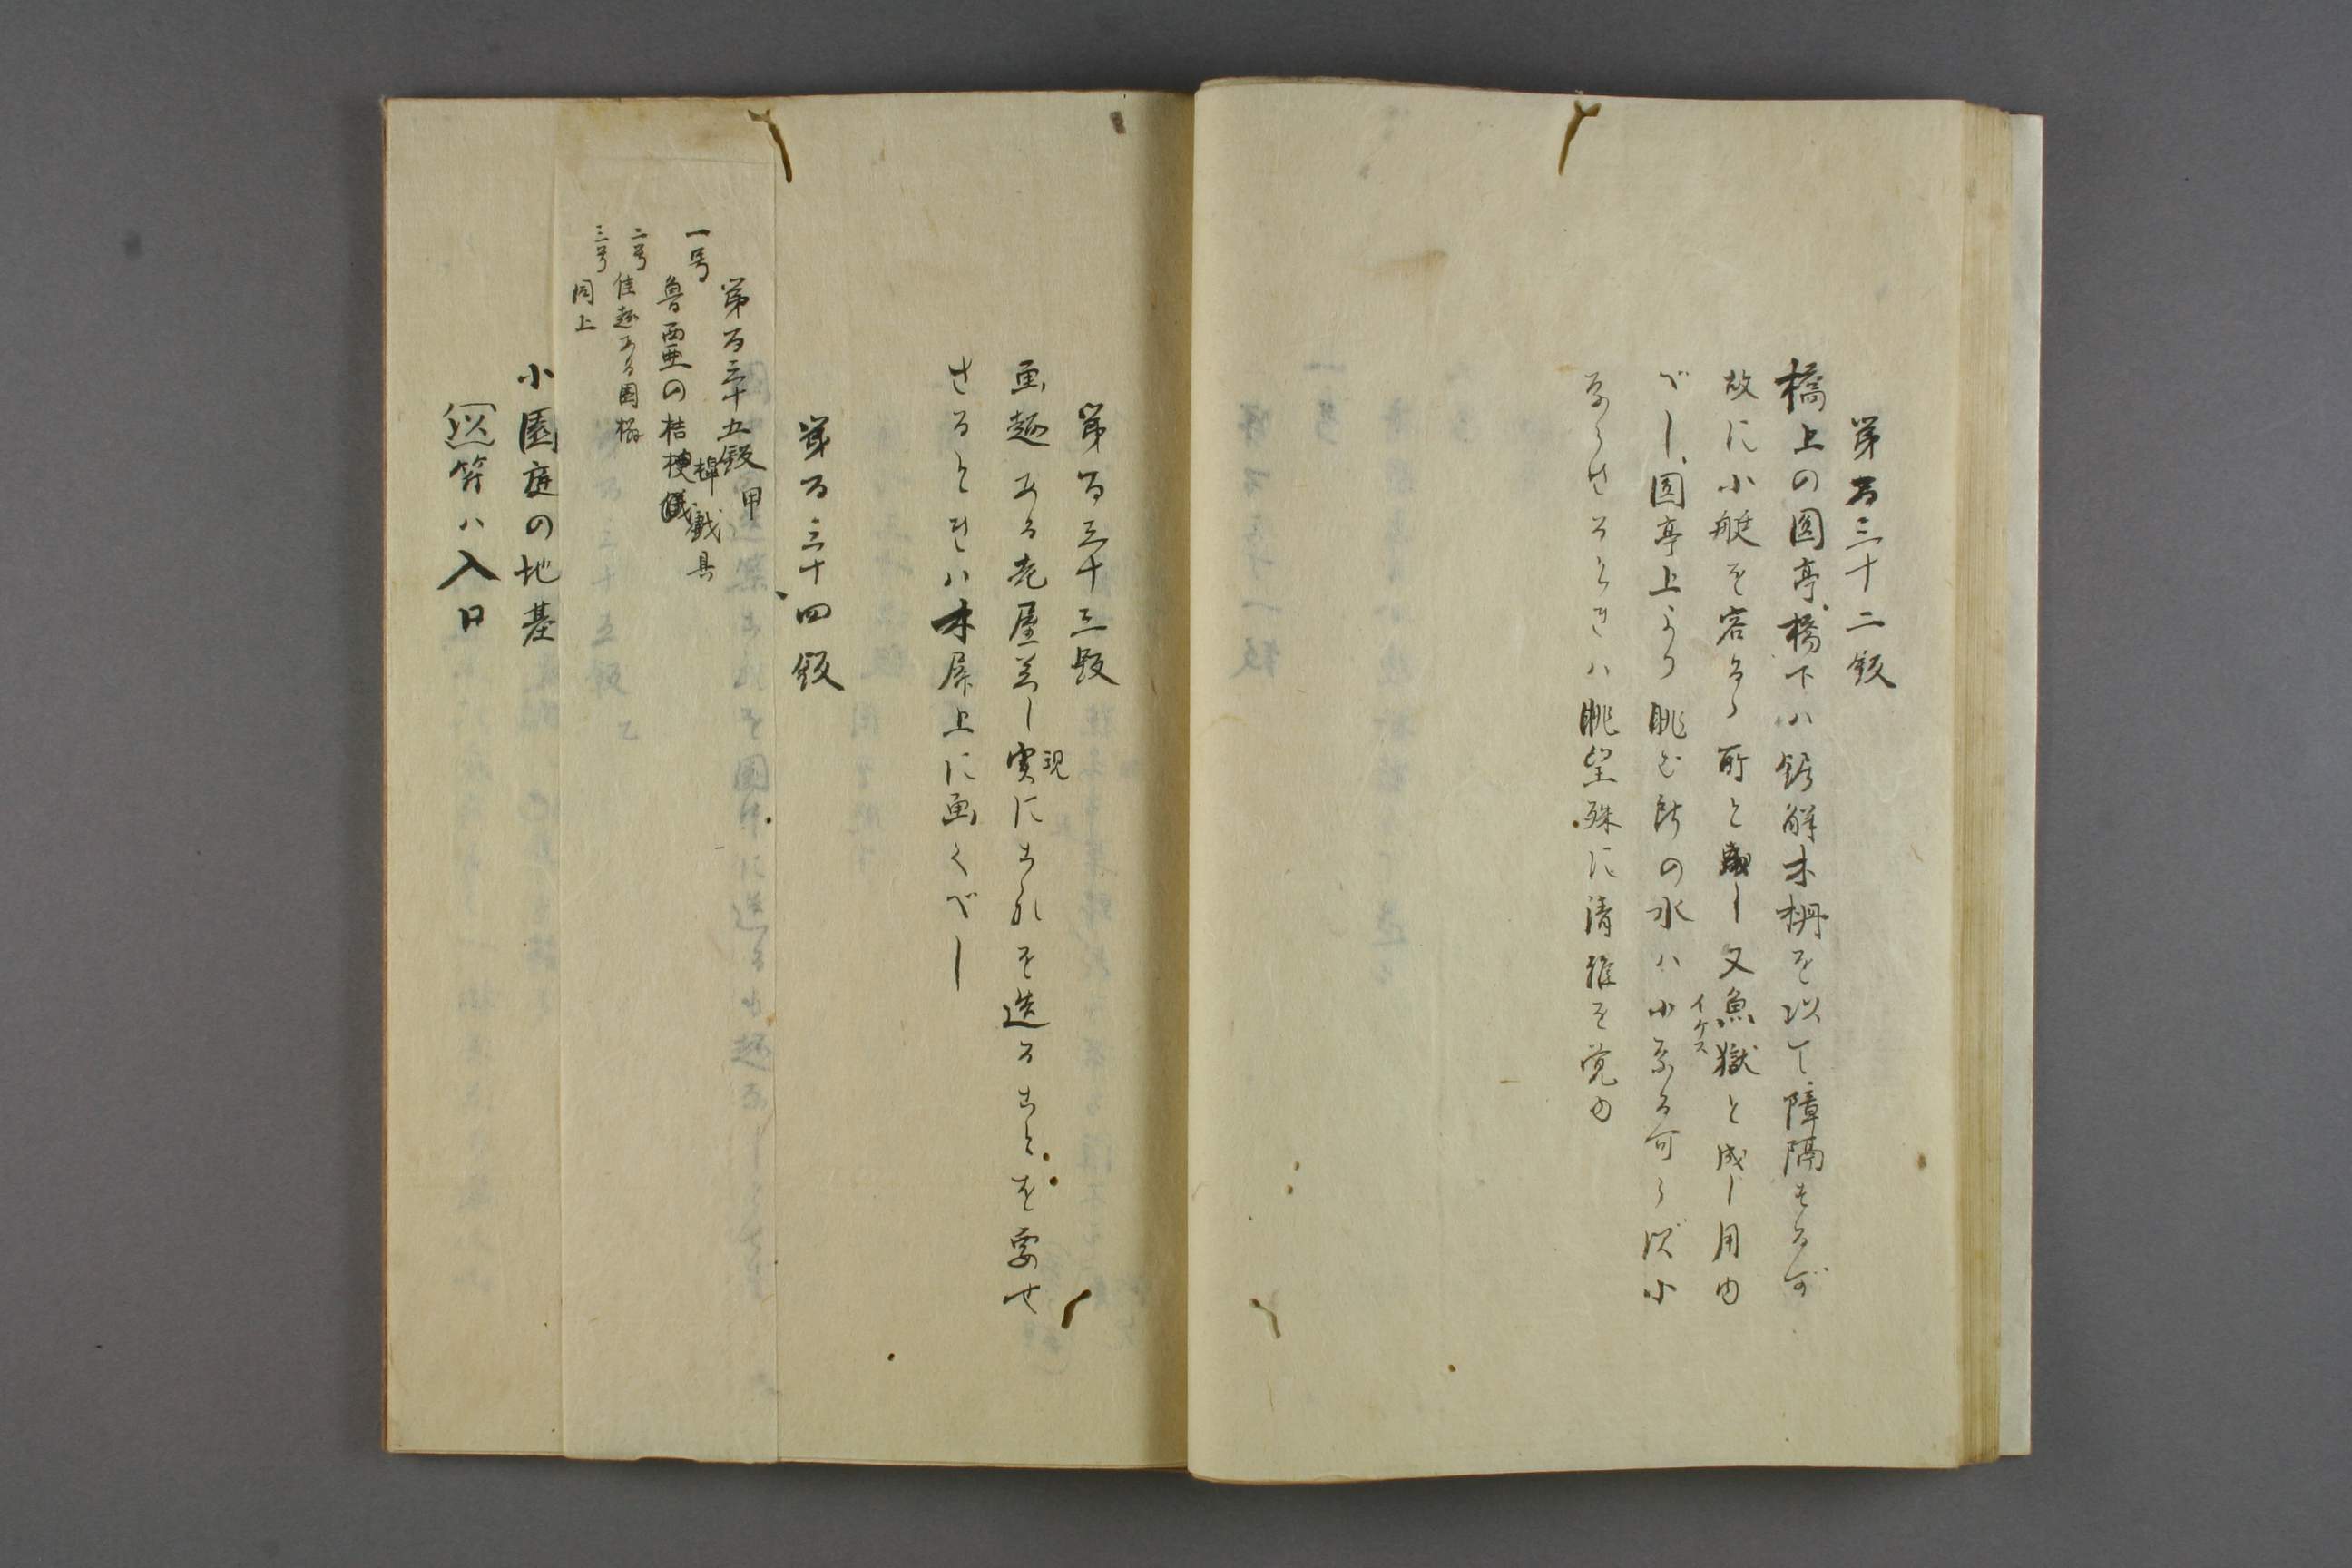 第百三十二段
橋上の園亭橋下ハ鋸解木柵を以て障隔するが
故に小艇を容るゝ所と成し又魚獄と成し用ゆ
イケス
べし園亭上より眺む所の水ハ小系る可らず小
ならさるときハ眺望殊に清雅を覚ゆ
第百三十三段
画趣ある老屋若し実にこれを造ることを要せ
現
さるときハ木屏上に画くべし
第百三十四段
小園庭の地基
符ハ入口
第百三十五段甲
一号
魯西亜の桔槹戯具
二号
佳趣ある園
三号
同上